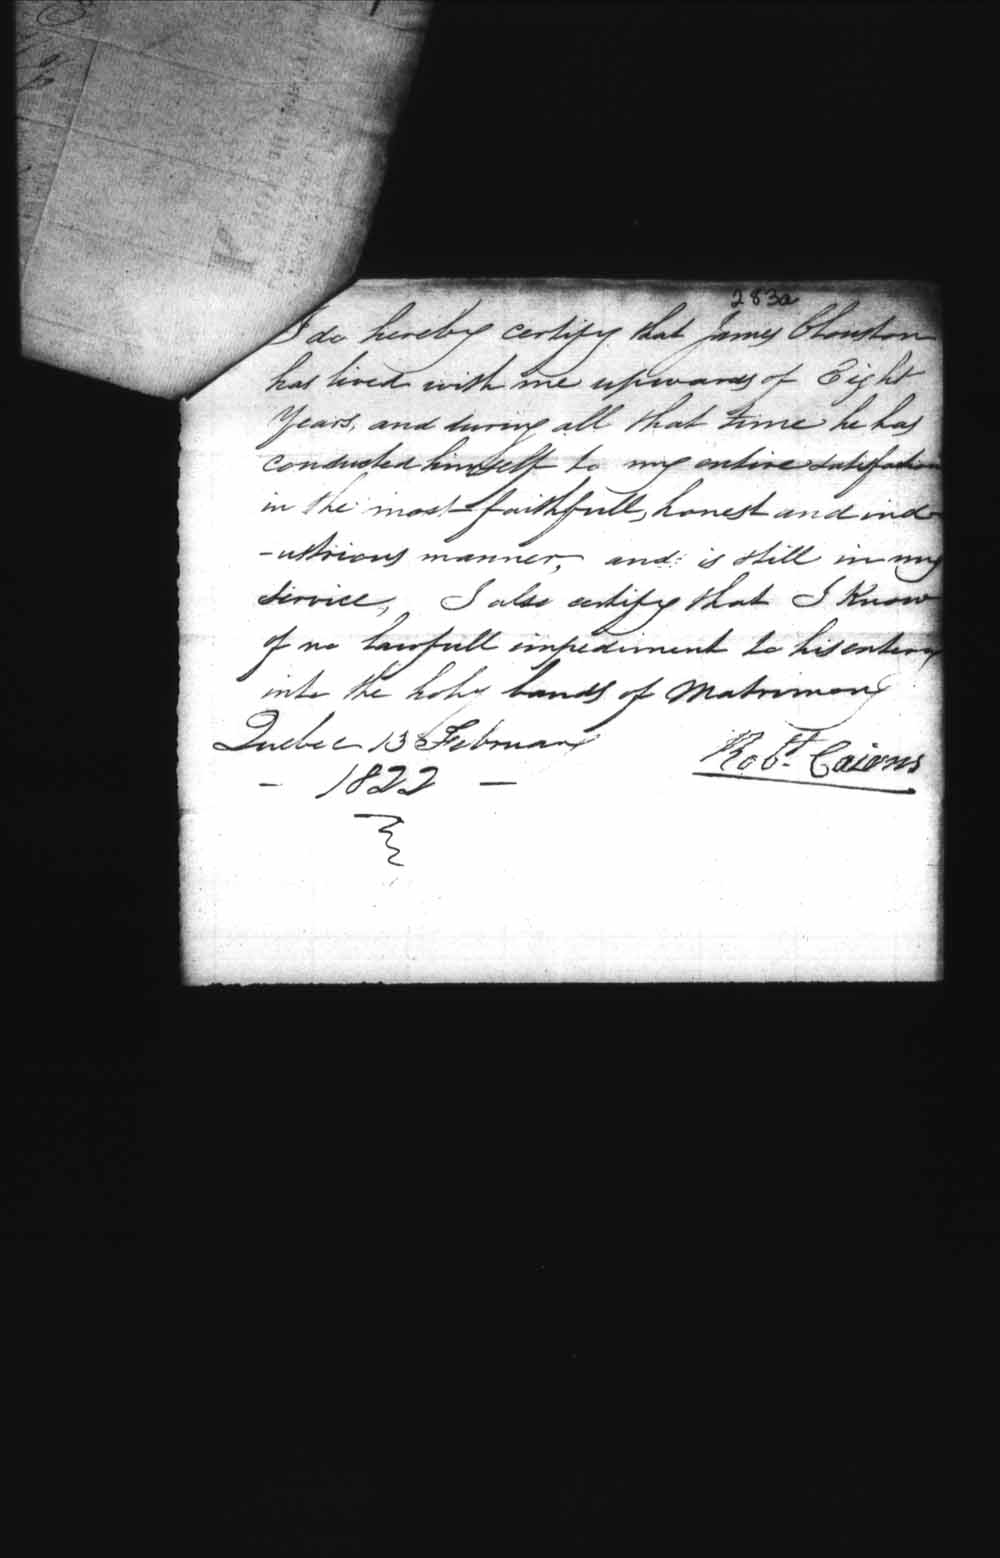 283a
I do hereby certify that James Clouston
has lived with me upwards of Eight
Years, and during all that time he has
conducted himself to my entire satisfaction
in the most faithfull, honest and ind
-ustrious manner, and is still in my
Service, I also certify that I Know
of no lawfull impediment to his entering
into the holy bands of Matrimony
Quebec 13 February
- 1822 -
Robt. Cairns